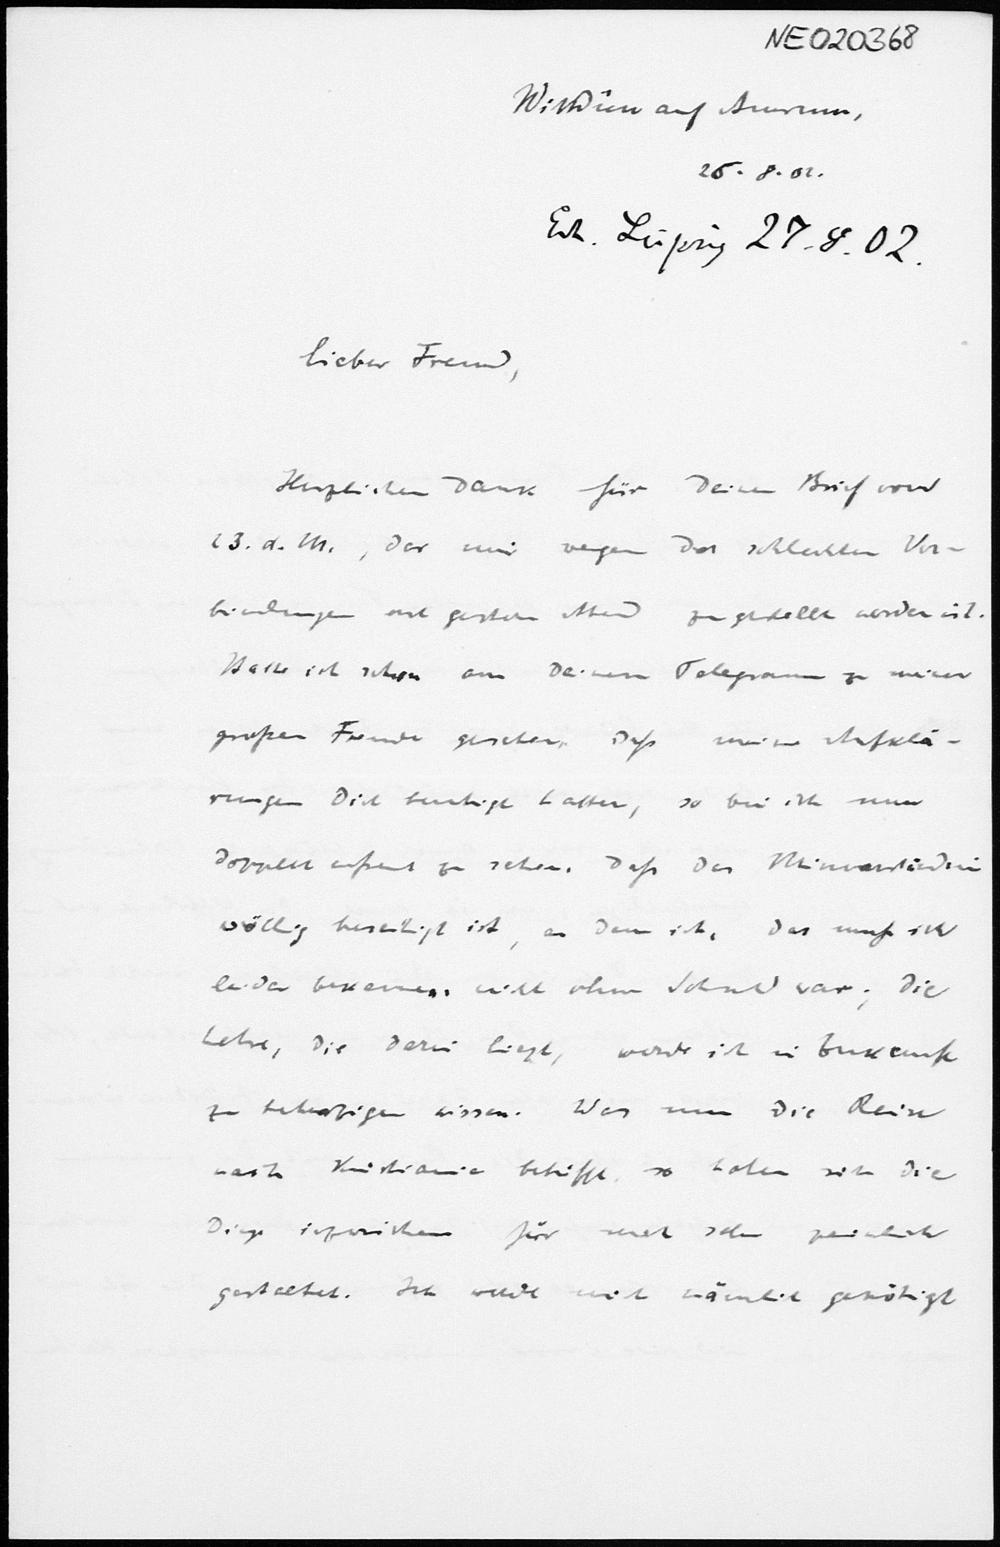 NE020368
Wittdün auf Amrum,
26. 8. 02.
Erh. Leipzig 27. 8. 02.
Lieber Freund,
Herzlichen Dank für Deinen Brief vom
23. d. M., der mir wegen der schlechten Ver-
bindungen erst gestern Abend zugestellt worden ist.
Hatte ich schon aus Deinem Telegramm zu meiner
großen Freude gesehen, daß meine Aufklä-
rungen Dich beruhigt hatten, so bin ich nun
doppelt erfreut zu sehen, daß das Missverständnis
völlig beseitigt ist, an dem ich, das muß ich
leider bekennen, nicht ohne Schuld war; die
Lehre, die darin liegt, werde ich in Zukunft
zu beherzigen wissen. Was nun die Reise
nach Kristiania betrifft, so haben sich die
Dinge inzwischen für mich sehr peinlich
gestaltet. Ich werde mich nämlich genötigt